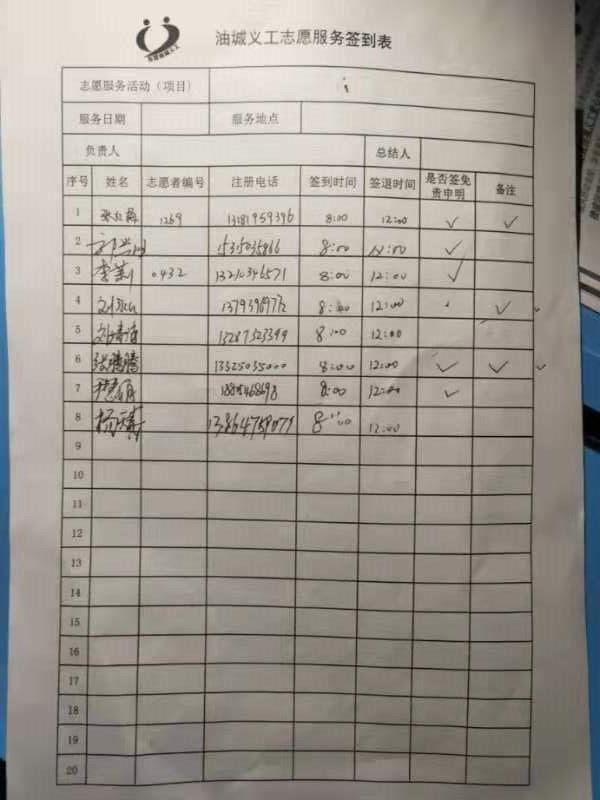 油城义工志愿服务签到表
志愿服务活动（项目）
服务日期 服务地点
负责人 总结人
序号 姓名 志愿者编号 注册电话 签到时间 签退时间 是否签免责申明 备注
1 1269 13181959396 8:00 12:00 ✓ ✓
2 8:00 ✓
3 0432 13210346571 8:00 12:00 ✓
4 8:00 12:00 ✓
5 13287323399 8:00 12:00
6 张腾腾 13325035000 8:00 12:00 ✓ ✓
7 8:00 12:00 ✓
8 13864759079 8:00 12:00
9
10
11
12
13
14
15
16
17
18
19
20